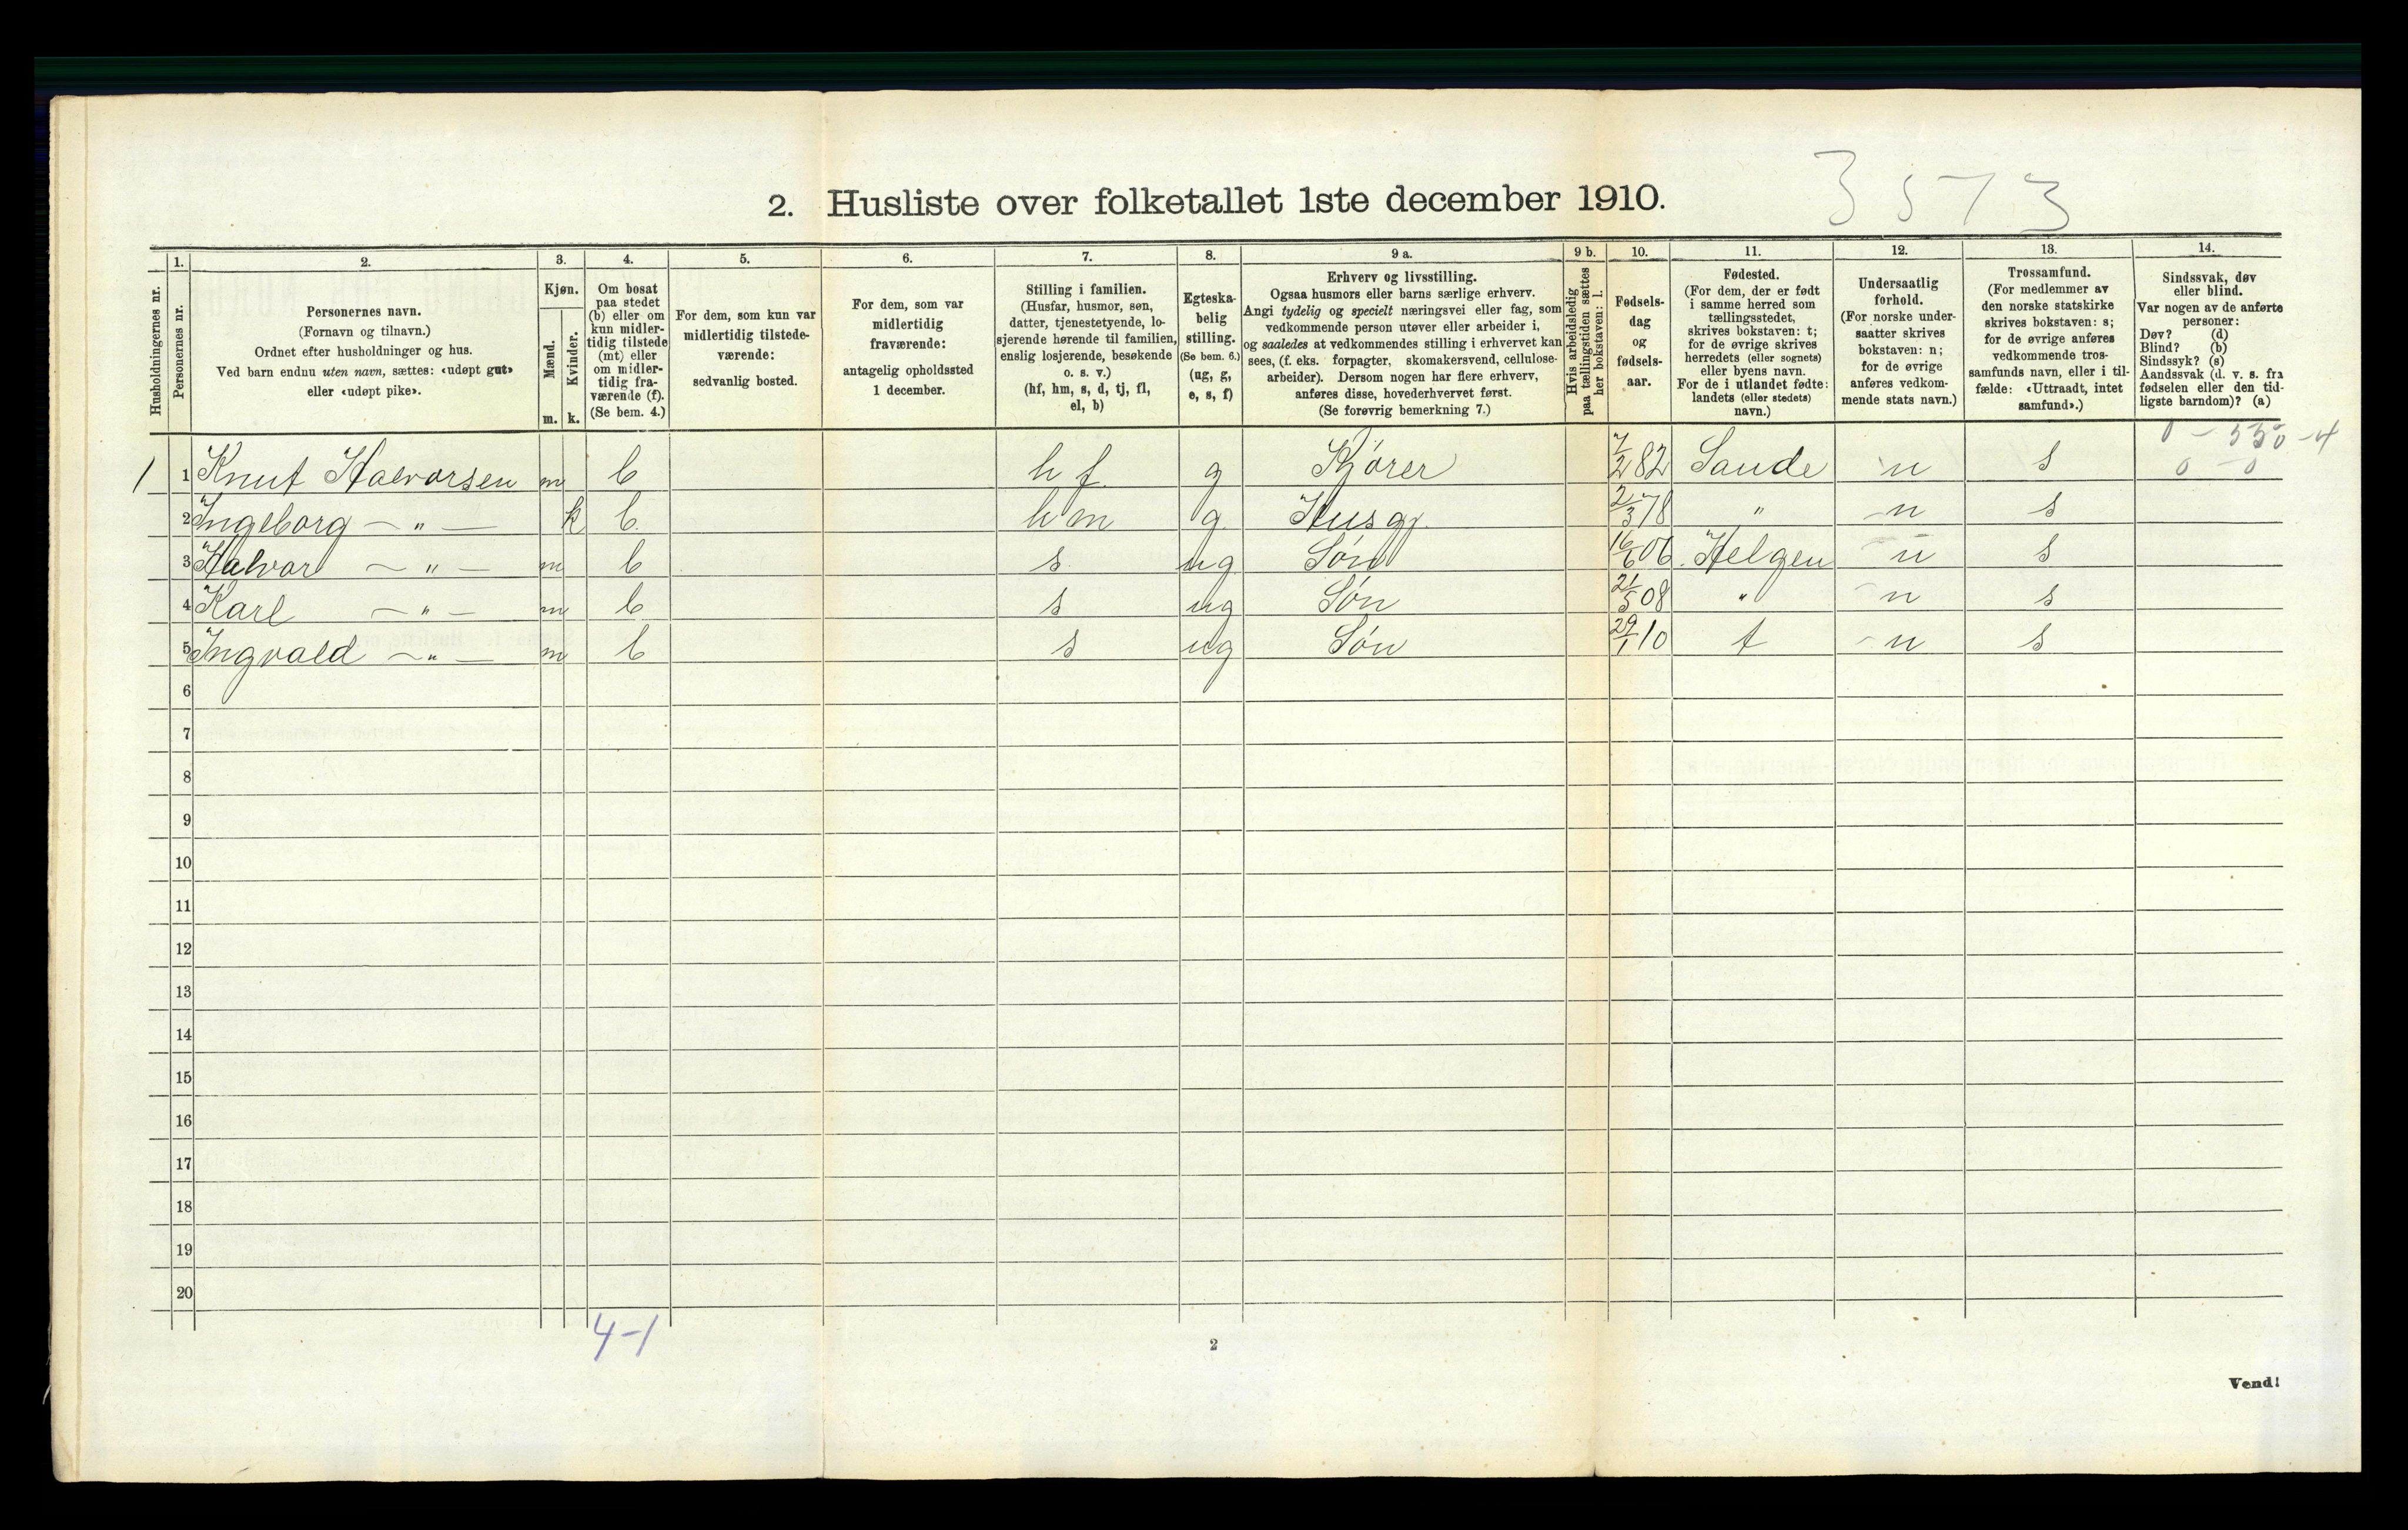 3573
2. Husliste over folketallet 1ste december 1910.
Husholdningernes nr.
1.
Personernes nr.
2.
Personernes navn.
(Fornavn og tilnavn.)
Ordnet efter husholdninger og hus.
Ved barn endnu uten navn, sættes: «udøpt gut»
eller «udøpt pike».
3.
Kjøn.
Mænd.
Kvinder.
m. k.
4.
Om bosat
paa stedet
(b) eller om
kun midler-
tidig tilstede
(mt) eller
om midler-
tidig fra-
værende (f).
(Se bem. 4.)
5.
For dem, som kun var
midlertidig tilstede-
værende:
sedvanlig bosted.
6.
For dem, som var
midlertidig
fraværende:
antagelig opholdssted
1 december.
7.
Stilling i familien.
(Husfar, husmor, søn,
datter, tjenestetyende, lo-
sjerende hørende til familien,
enslig losjerende, besøkende
o. s. v.)
(hf, hm, s, d, tj, fl,
el, b)
8.
Egteska-
belig
stilling.
(Se bem. 6.)
(ug, g,
e, s, f)
9 a.
Erhverv og livsstilling.
Ogsaa husmors eller barns særlige erhverv.
Angi tydelig og specielt næringsvei eller fag, som
vedkommende person utøver eller arbeider i,
og saaledes at vedkommendes stilling i erhvervet kan
sees, (f. eks. forpagter, skomakersvend, cellulose-
arbeider). Dersom nogen har flere erhverv,
anføres disse, hovederhvervet først.
(Se forøvrig bemerkning 7.)
9 b.
Hvis arbeidsledig
paa tællingstiden sættes
her bokstaven: l.
10.
Fødsels-
dag
og
fødsels-
aar.
11.
Fødested.
(For dem, der er født
i samme herred som
tællingsstedet,
skrives bokstaven: t;
for de øvrige skrives
herredets (eller sognets)
eller byens navn.
For de i utlandet fødte:
landets (eller stedets)
navn.)
12.
Undersaatlig
forhold.
(For norske under-
saatter skrives
bokstaven: n;
for de øvrige
anføres vedkom-
mende stats navn.)
13.
Trossamfund.
(For medlemmer av
den norske statskirke
skrives bokstaven: s;
for de øvrige anføres
vedkommende tros-
samfunds navn, eller i til-
fælde: «Uttraadt, intet
samfund».)
14.
Sindssvak, døv
eller blind.
Var nogen av de anførte
personer:
Døv? (d)
Blind? (b)
Sindssyk? (s)
Aandssvak (d. v. s. fra
fødselen eller den tid-
ligste barndom)? (a)
1 1 Knut Halvorsen m b hf g Kjører 7/2 82 Sande n s
0 - 0
2 Ingeborg — " — k b hm g Husgj. 2/3 78 " n s
3 Halvor — " — m b s ug Søn 16/6 06 Helgen n s
4 Karl — " — m b s ug Søn 21/5 08 " n s
5 Ingvald — " — m b s ug Søn 29/1 10 t n s
6
7
8
9
10
11
12
13
14
15
16
17
18
19
20
4-1
2
Vend!